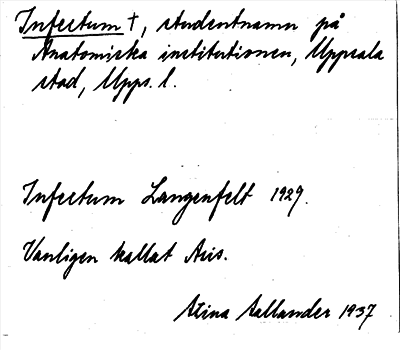 Infectum †, studentnamn på
Anatomiska institutionen, Uppsala
stad, Upps. l.
Infectum Langenfelt 1929.
Vanligen kallat Aris.
Stina Sallander 1937